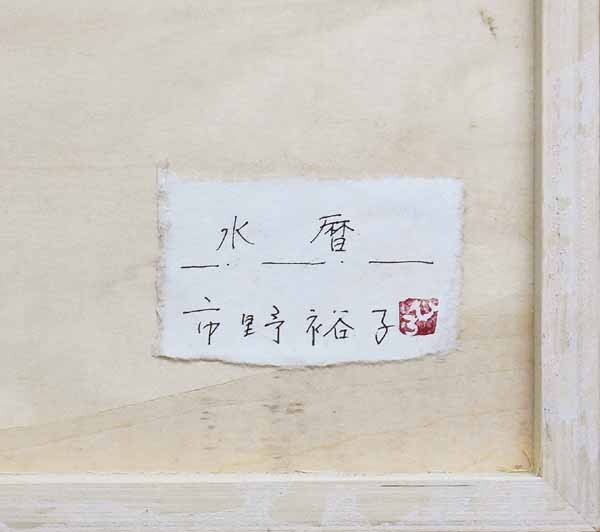 水暦
市野裕子